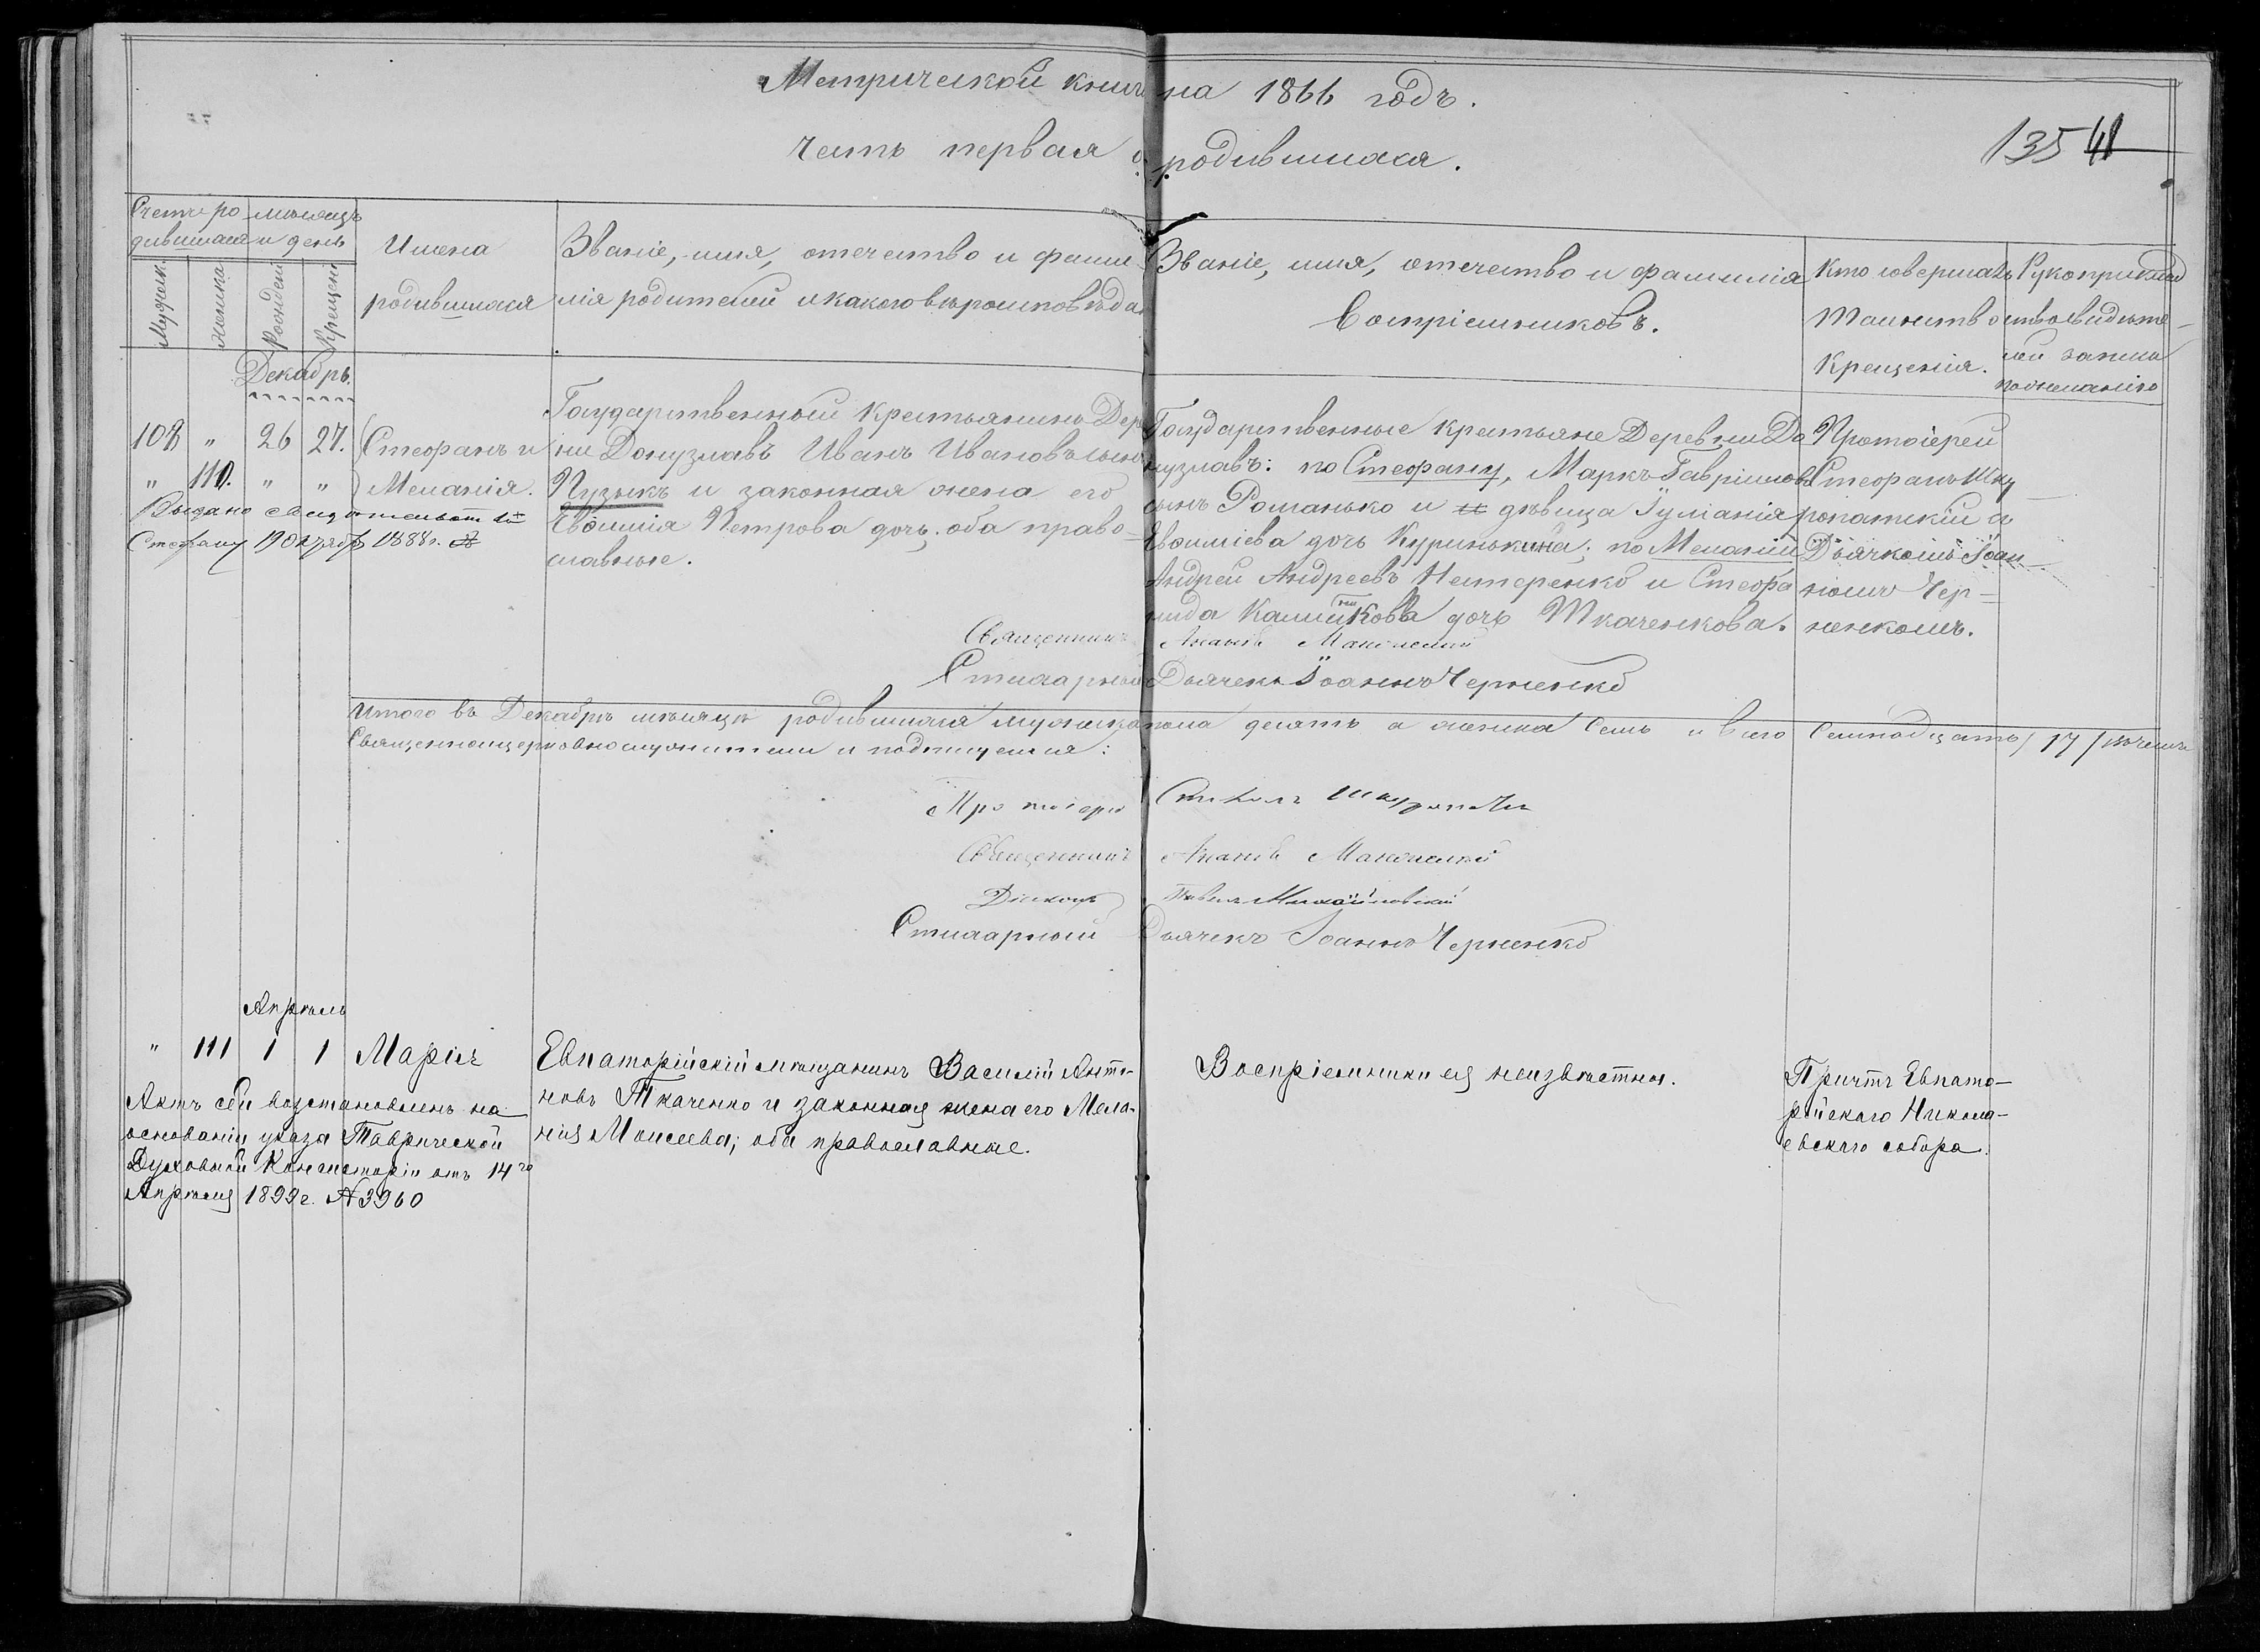 Метрической книги на 1866 годъ.
часть первая о родившихся.
135 41
Счетъ ро
дившихся
Мѣсяцъ
и день
Мужеск.
Женска.
Рожденія
Крещенія
Имена
родившихся
Званіе, имя, отчество и фами-
лія родителей и какого вѣроисповѣдан
Званіе, имя, отчество и фамилія
Воспріемниковъ.
Кто совершалъ
таинство
Крещенія.
Рукоприклад
ство свидѣте-
лей записи
по желанію
Декабрь.
108 " 26 27.
" 110. " "
Стефанъ и
Меланія.
Выдано свидѣтельство
Стефану 19 Октября 1888 г.
Государственный крестьянинъ Дер
ни Донузлавъ Иванъ Ивановъ сынъ
Пузыкъ и законная жена его
Евѳимія Петрова дочь. оба право-
славные.
Государственные крестьяне Деревни До
нузлавъ: по Стефану, Маркъ Гавріиловъ
сынъ Романько и дѣвица Іуліанія
Евѳиміева дочь Куринькина; по Меланіи
Андрей Андреевъ Нестеренко и Стефа
нида Калинникова дочь Ткаченкова.
Протоіерей
Стефанъ Шку
ропатскій и
Дьячкомъ Іоан
номъ Чер-
ненкомъ.
Священникъ Ананій
Стихарный Дьячекъ Іоаннъ Черненко
Итого въ Декабрѣ мѣсяцѣ родившихся мужеска пола десять а женска семь и всего семнадцать /17/ въ чемъ
Священноцерковнослужители и подписуемся:
Протоіерей Стефанъ
Священникъ Ананій
Діаконъ Павелъ
Стихарный Дьячекъ Іоаннъ Черненко
Апрѣль
" 111 1 1 Марія
Евпаторійскій мѣщанинъ Василій Анто-
новъ Ткаченко и законная жена его Мела-
нія Моисеева; оба православные.
Воспріемники ея неизвѣстны.
Причтъ Евпато-
рійскаго Никола-
евскаго собора.
Актъ сей возстановленъ на
основаніи указа Таврической
Духовной Консисторіи отъ 14го
Апрѣля 1899 г. № 3960